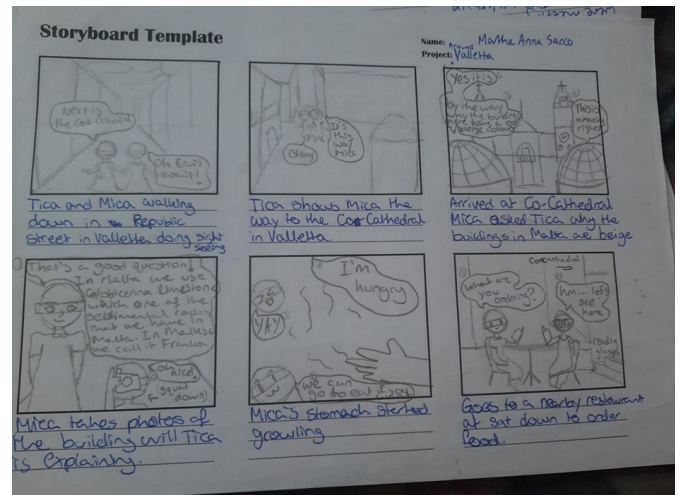 Storyboard Template
Name: Martha Anna Sacco
Project: Around Valletta
Next is
the Co-Cathedral
Oh I can't
wait!
Tica and Mica walking
down in Republic
street in Valletta doing sight
seeing
It's
this
way
Mica
Okay
Tica shows Mica the
way to the Co-Cathedral
in Valletta.
Yes it is
By the way
why the buildings
here have a
beige colour
This is
amazing
right?
Arrived at Co-Cathedral
Mica asked Tica why the
buildings in Malta are beige
That's a good question!
In Malta we use
Globigerina limestone
which one of the
sedimental rocks
that we have in
Malta. In Maltese
we call it Franka
Oh
nice!
(squat
down)
Mica takes photos of
the building will Tica
is explaining.
I'm
hungry
YAY
we can
go to eat if you
Mica's stomach started
growling
Co-cathedral
What are
you
ordering?
hm... let's
see
here
Goes to a nearby restaurant
at sat down to order
food.